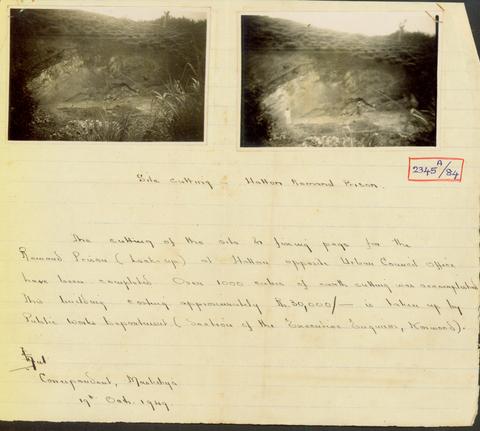 2345 A/84
Site cutting - Hatton Remand Prison.
The cutting of the site & fixing pegs for the
Remand Prison (Lock-up) at Hatton opposite Urban Council Office
have been completed Over 1000 cubes of earth cutting was accomplished
This building costing approximately Rs. 30,000/- is taken up by
Public Works Department (Section of the Executive Engineer, Norwood).
Correspondent,
17th Oct. 1949